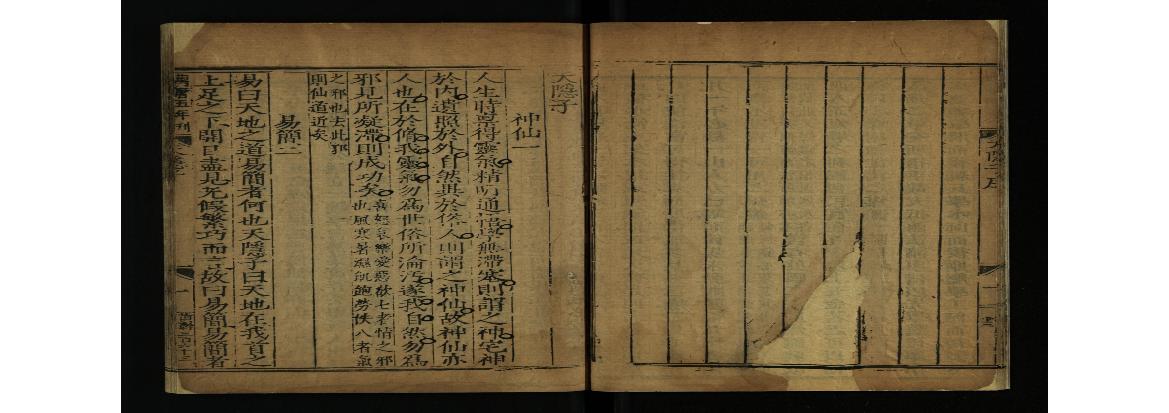 天隱子序
一
天隱子
神仙一
人生時禀得靈氣精明通悟學無滯塞則謂之神宅神
於內遺照於外自然異於俗人則謂之神仙故神仙亦
人也在於修我靈氣勿爲世俗所淪汚遂我自然勿爲
邪見所凝滯則成功矣
喜怒哀樂愛惡欲七者情之邪
也風寒暑濕飢飽勞佚八者氣
之邪也去此邪
則仙道近矣
易簡二
易曰天地之道易簡者何也天隱子曰天地在我首之
上足之下開目盡見無假繁巧而言故曰易簡易簡者
五年刊
一